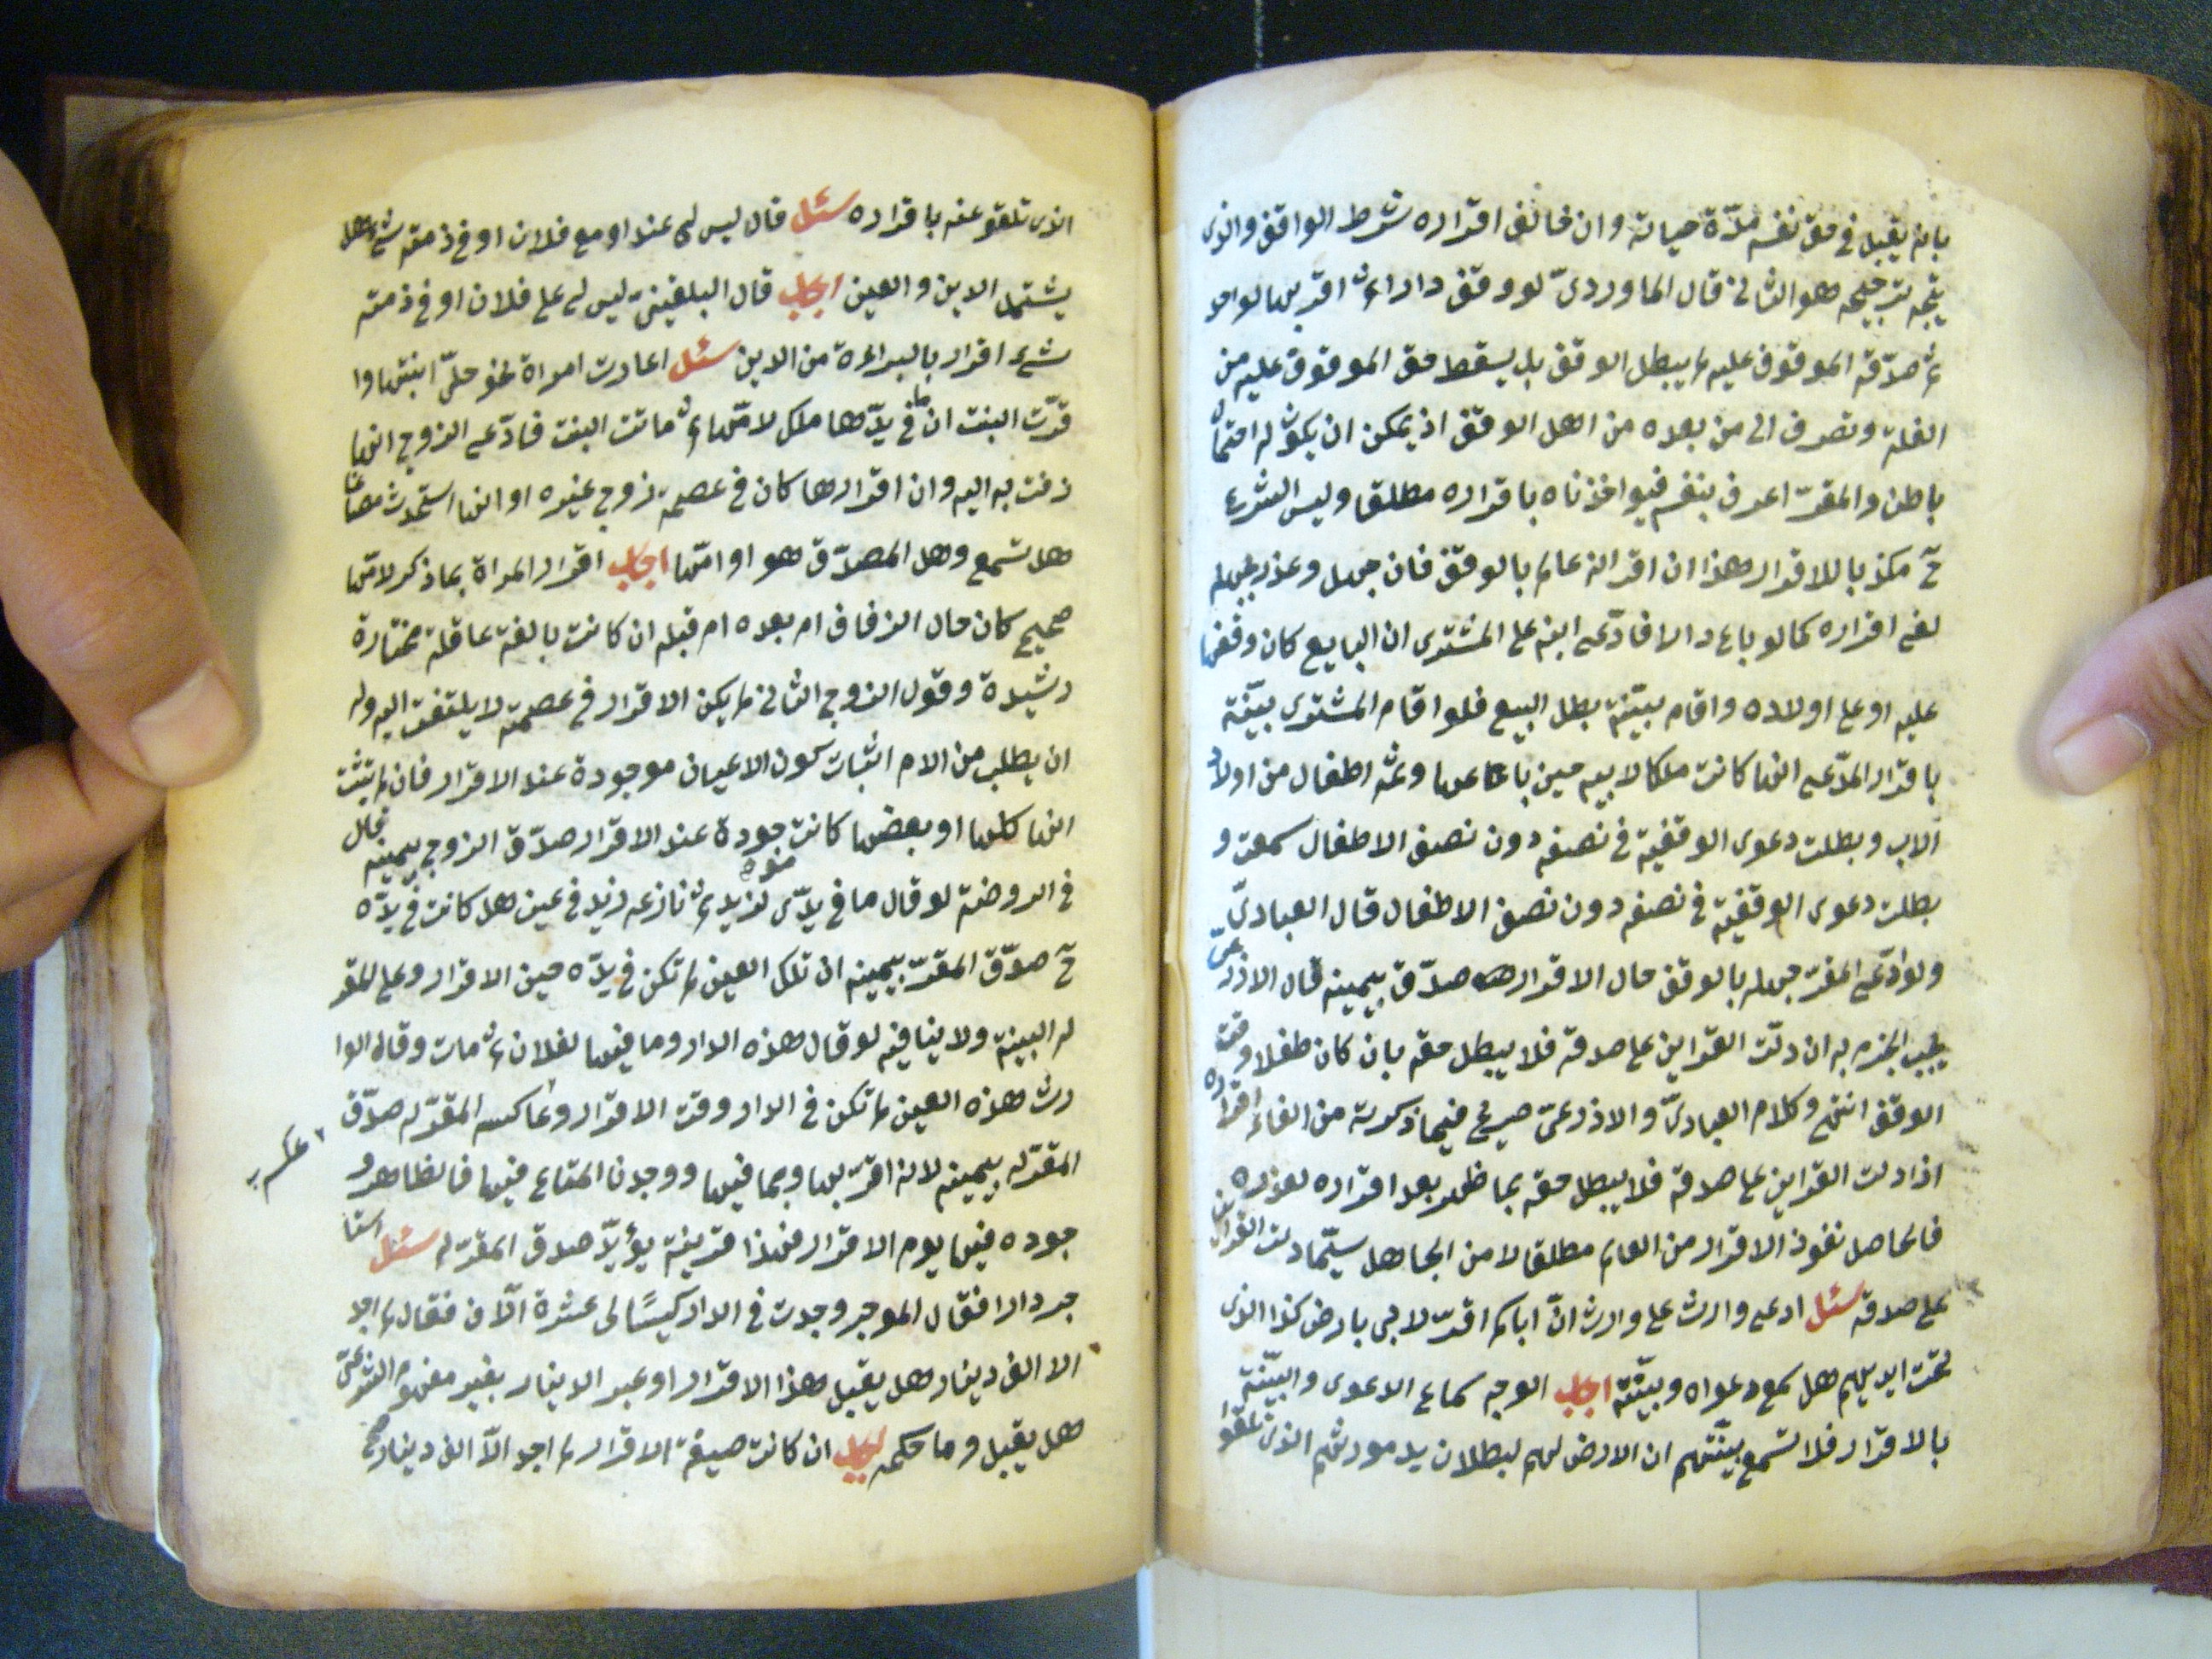 بانه يقبل في حق نفسه مدّة حياته وان خالف اقراره شرط الواقف والذى
يتجه ترجيحه هو الثانى قال الماوردىّ لو وقف دارا ثم اقر بها لواحد
ثم صدّقه الموقوف عليه لم يبطل الوقف بل يسقط حق الموقوف عليه من
الغلة وتصرف الى من بعده من اهل الوقف اذ يمكن ان يكون له احتمال
باطن والمقرّ اعرف بنفسه فيواخذناه باقراره مطلقا وليس الشرع
ح مكذبا للاقرار وهذا ان اقر انه عالم بالوقف فان جهل وعذر بجهله
لغى اقراره كما لو باع دارا فادّعى ابنه على المشترى ان البايع كان وقفها
عليه او على اولاده واقام بيّنة بطل البيع فلو اقام المشترى بيّنة
باقرار المدّعى انها كانت ملكا لابيه حين باعها وثم اطفال من اولاد
الاب وبطلت دعوى الوقفية في نصفه دون نصف الاطفال سمعت و
بطلت دعوى الوقفية في نصفه دون نصف الاطفال قال العبادىّ
ولو ادّعى المقرّ جهله بالوقف حال الاقرار صدّق بيمينه قال الاذرعىّ
يجب الجزم به ان دلّت القراين على صدقه فلا يبطل حقه بان كان طفلا وقت
الوقف انتهى وكلام العبادىّ والاذرعىّ صريح فيما ذكرته من الغاء اقراره
اذا دلت القراين على صدقه فلا يبطل حقه بما ظهر بعد اقراره لعذره
فالحاصل نفوذ الاقرار من العالم مطلقا لا من الجاهل سيّما دلت القراين
على صدقه سئل ادعى وارث على وارث انّ اباكم اقرّ لابى بارض كذا الذى
تحت ايديهم هل تسمع دعواه وبيّنته اجاب الوجه سماع الدعوى والبيّنة
بالاقرار فلا تسمع بيّنتهم ان الارض لهم لبطلان يد مورثهم الذى تلقوا
الذى تلقو عنه باقراره سئل قال ليس لى عند او مع فلان او في ذمته شئ هل
يشتمل الدين والعين اجاب قال البلقينىّ ليس لى على فلان او في ذمته
شئ اقرار بالبراءة من الدين سئل اعارت امراة نحو حلىّ ابنتها وا
قرّت البنت ان ما في يدّها ملك لامّها ثم ماتت البنت فادّعى الزوج انها
زفت به اليه وان اقرارها كان في عصمة زوج غيره او انها استحدث مصاغا
هل تسمع وهل المصدّق هو او امّها اجاب اقرار المراة بما ذكر لامّها
صحيح كان حال الزفاف ام بعده ام قبله ان كانت بالغة عاقلة مختارة
رشيدة وقول الزوج الثانى لم يكن الاقرار في عصمته لا يلتفت اليه وله
ان يطلب من الام اثبات كون الاعيان موجودة عند الاقرار فان لم يثبت
انها كلها او بعضها كانت موجودة عند الاقرار صدّق الزوج بيمينه قال
في الروضة لو قال ما في يدّى لزيد ثم نازعه زيد في عين هل كانت في يدّه
ح صدّق المقرّ بيمينه ان تلك العين لم تكن في يدّه حين الاقرار وعلى المقر
له البينة ولا ينافيه لو قال هذه الدار وما فيها لفلان ثم مات وقال الوا
رث هذه العين لم تكن في الدار وقت الاقرار وعاكسه المقرّ له صدّق
المقرّ له بيمينه لانه اقرّ بها وبما فيها ووجدنا المتاع فيها فالظاهر و
جوده فيها يوم الاقرار فهذا قرينة يؤيدّ صدق المقرّ له سئل استا
جر دارا فقال الموجر وجدت في الدار كيسًا لى عشرة الاّف فقال لم اجد
الا الف دينار هل يقبل هذا الاقرار او عبر الدينار بغير
هل يقبل وما حكمه اجاب ان كانت صيغة الاقرار لم اجد الاّ الف دينار